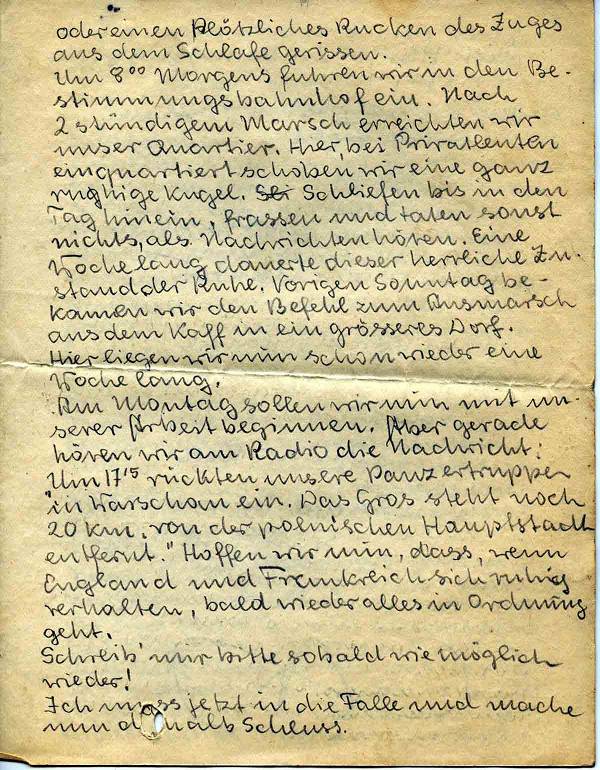 oder einen plötzliches Rucken des Zuges
aus dem Schlafe gerissen.
Um 8⁰⁰ Morgens fuhren wir in den Be-
stimmungsbahnhof ein. Nach
2 stündigem Marsch erreichten wir
unser Quartier. Hier, bei Privatleuten
einquartiert schoben wir eine ganz
rughige Kugel. Schliefen bis in den
Tag hinein, frassen und taten sonst
nichts, als Nachrichten hören. Eine
Woche lang dauerte dieser herrliche Zu-
stand der Ruhe. Vorigen Sonntag be-
kamen wir den Befehl zum Ausmarsch
aus dem Kaff in ein grösseres Dorf.
Hier liegen wir nun schon wieder eine
Woche lang.
Am Montag sollen wir nun mit un-
serer Arbeit beginnen. Aber gerade
hören wir am Radio die Nachricht:
Um 17¹⁵ rückten unsere Panzertruppen
"in Warschau ein. Das Gros steht noch
20 km. von der polnischen Hauptstadt
entfernt." Hoffen wir nun, dass, wenn
England und Frankreich sich ruhig
verhalten, bald wieder alles in Ordnung
geht.
Schreib' mir bitte sobald wie möglich
wieder!
Ich muss jetzt in die Falle und mache
nun halb Schluss.